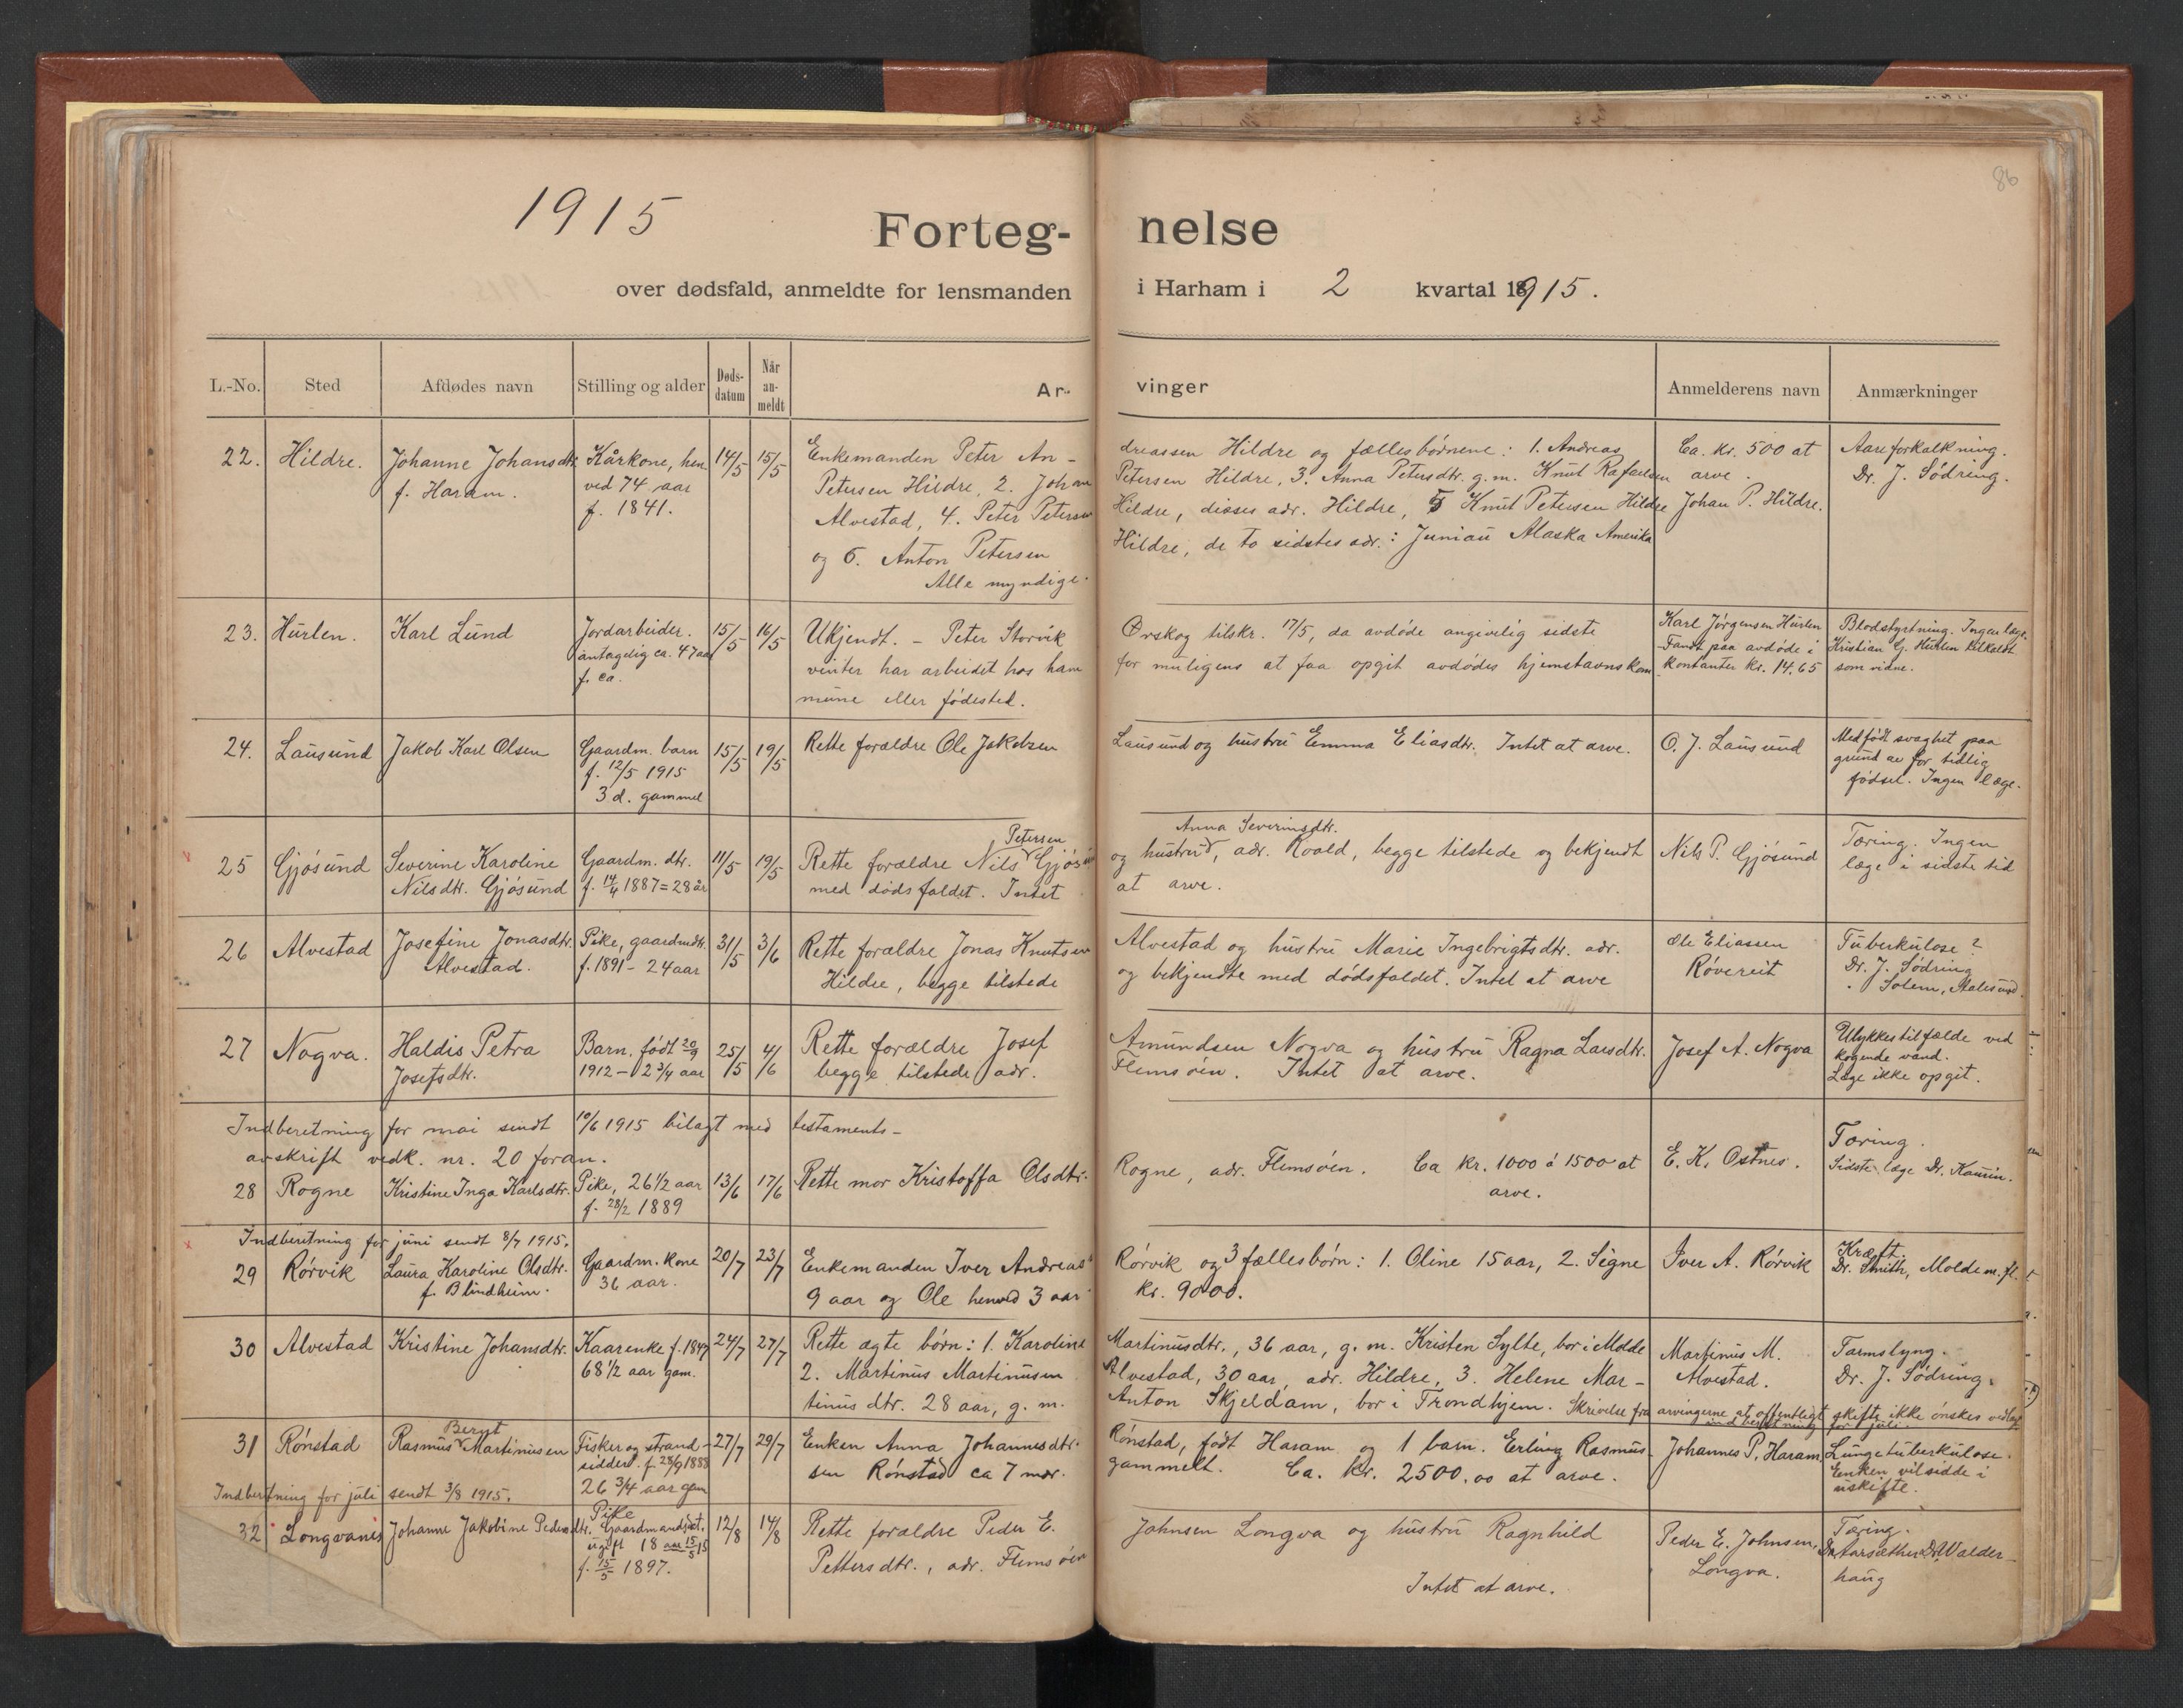 86
1915
Forteg-
nelse
over dødsfald, anmeldte for lensmanden
i Harham i 2 kvartal 1915.
L.-No.
Sted
Afdødes navn
Stilling og alder
Døds-
datum
Når
an-
meldt
Ar-
vinger
Anmelderens navn
Anmærkninger
22.
Hildre.
Johanne Johansdtr.
f. Haram.
Kårkone, hen
ved 74 aar
f. 1841.
14/5
15/5
Enkemanden Peter An-
dreassen Hildre og fællesbørnene: 1. Andreas
Petersen Hildre, 2. Johan
Petersen Hildre, 3. Anna Petersdtr. g.m. Knut Rafaelsen
Alvestad, 4. Peter Petersen
Hildre, disses adr. Hildre, 5 Knut Petersen Hildre
og 6. Anton Petersen
Hildre, de to sidstes adr.: Juniau Alaska Amerika
Alle myndige.
Ca. kr. 500 at
arve.
Johan P. Hildre.
Aareforkalkning.
Dr. J. Sødring.
23.
Hurlen.
Karl Lund
Jordarbeider.
antagelig ca. 47 aar
f. ca.
15/5
16/5
Ukjendt. - Peter Storvik
Ørskog tilskr. 17/5, da avdøde angivelig sidste
vinter har arbeidet hos ham
for muligens at faa opgit avdødes hjemstavnskom
mune eller fødested.
Karl Jørgensen Hurlen
Fandt paa avdøde i
kontanter kr. 14.65
Blodstyrtning. Ingen læge.
Kristian G. Hurlen tilkaldt
som vidne.
24.
Lausund
Jakob Karl Olsen
Gaardm. barn
f. 12/5 1915
3 d. gammel
15/5
19/5
Rette forældre Ole Jakobsen
Lausund og hustru Emma Eliasdtr. Intet at arve.
O. J. Lausund
Medfødt svaghet paa
grund av for tidlig
fødsel. Ingen læge.
25
Gjøsund
Severine Karoline
Nilsdtr. Gjøsund
Gaardm. dtr.
f. 14/4 1887 = 28 år
11/5
19/5
Petersen
Anna Severinsdtr.
Rette forældre Nils Gjøsund
og hustru, adr. Roald, begge tilstede og bekjendt
med dødsfaldet. Intet
at arve.
Nils P. Gjøsund
Tæring. Ingen
læge i sidste tid
26
Alvestad
Josefine Jonasdtr.
Alvestad.
Pike, gaardmdtr.
f. 1891 - 24 aar
31/5
3/6
Rette forældre Jonas Knutsen
Alvestad og hustru Marie Ingebrigtsdtr. adr.
Hildre, begge tilstede
og bekjendte med dødsfaldet. Intet at arve
Ole Eliassen
Røvereit
Tuberkulose?
Dr. J. Sødring
" Solem, Aalesund.
27
Nogva.
Haldis Petra
Josefsdtr.
Barn. født 20/9
1912 - 2 3/4 aar
25/5
4/6
Rette forældre Josef
Amundsen Nogva og hustru Ragna Larsdtr.
begge tilstede, adr.
Flemsøen. Intet at arve.
Josef A. Nogva
Ulykkestilfælde ved
kogende vand.
Læge ikke opgit.
Indberetning for mai sendt 10/6 1915 bilagt med testaments-
avskrift vedk. nr. 20 foran.
28
Rogne
Kristine Inga Karlsdtr.
Pike, 26 1/2 aar
f. 28/2 1889
13/6
17/6
Rette mor Kristoffa Olsdtr.
Rogne, adr. Flemsøen. Ca kr. 1000 à 1500 at
arve.
E. K. Ostnes.
Tæring.
Sidste læge Dr. Kaurin.
Indberetning for juni sendt 8/7 1915.
29
Rørvik
Laura Karoline Olsdtr.
f. Blindheim.
Gaardm. kone
36 aar.
20/7
23/7
Enkemanden Iver Andreas
Rørvik og 3 fællesbørn: 1. Oline 15 aar, 2. Signe
9 aar og Ole henved 3 aar
kr. 9000.
Iver A. Rørvik
Kræft.
Dr. Smith, Molde m. fl.
30
Alvestad
Kristine Johansdtr.
Kaarenke f. 1847
68 1/2 aar gam.
24/7
27/7
Rette ægte børn: 1. Karoline
Martinusdtr., 36 aar, g. m. Kristen Sylte, bor i Molde
2. Martinus Martinusen
Alvestad, 30 aar, adr. Hildre, 3. Helene Mar-
tinusdtr. 28 aar, g. m.
Anton Skjeldam, bor i Trondhjem. Skrivelse fra arvingerne at offentligt skifte ikke ønskes vedlagt
indberetning for juli.
Martinus M.
Alvestad.
Tarmslyng.
Dr. J. Sødring.
31
Rønstad
Bernt
Rasmus Martinusen
Fisker og strand-
sidder. f. 28/9 1888
26 3/4 aar gam
27/7
29/7
Enken Anna Johannesdtr.
Rønstad, født Haram og 1 barn. Erling Rasmus-
sen Rønstad ca 7 mdr.
gammelt. Ca. kr. 2500.00 at arve.
Johannes P. Haram
Lungetuberkulose.
Enken vil sidde i
uskifte.
Indberetning for juli sendt 3/8 1915.
32
Longvanes
Johanne Jakobine Pedersdtr.
Pike
Gaardmandsdt.
ugift 18 aar 15/5 15
f. 15/5 1897.
12/8
14/8
Rette forældre Peder E.
Johnsen Longva og hustru Ragnhild
Pettersdtr., adr. Flemsøen
Intet at arve.
Peder E. Johnsen,
Longva.
Tæring.
Dr. Aarsæther Dr. Walder-
haug